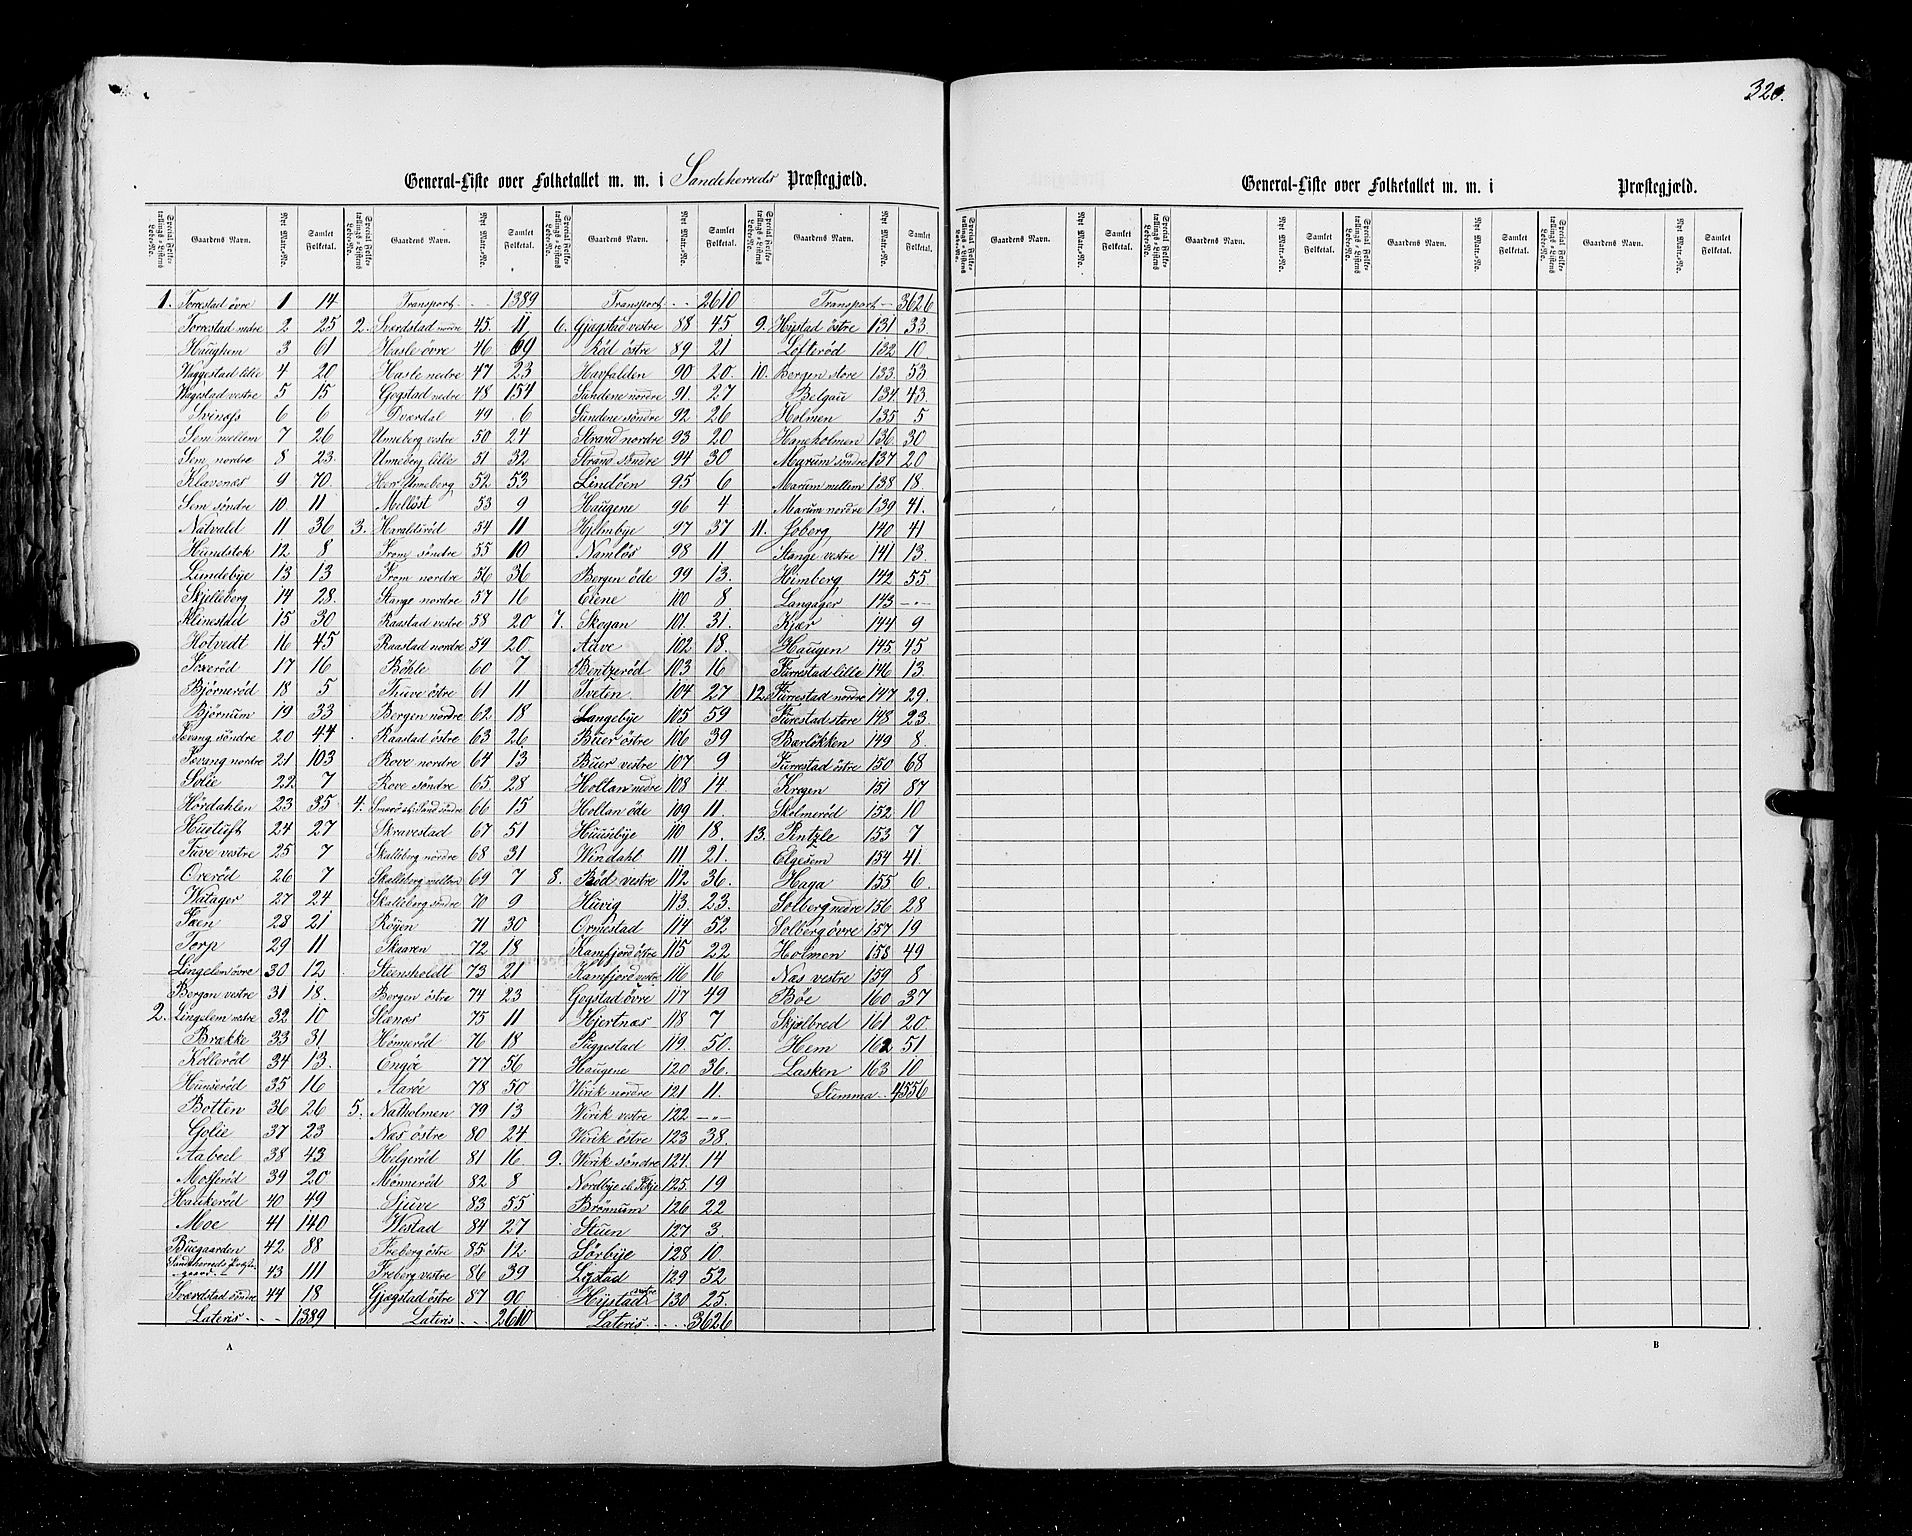 320.
General-Liste over Folketallet m. m. i Sandeherreds Præstegjæld.
Special Folketællings-Listens Løbe-No. Gaardens Navn. Nyt Matr.-No. Samlet Folketal. Special Folketællings-Listens Løbe-No. Gaardens Navn. Nyt Matr.-No. Samlet Folketal. Special Folketællings-Listens Løbe-No. Gaardens Navn. Nyt Matr.-No. Samlet Folketal. Special Folketællings-Listens Løbe-No. Gaardens Navn. Nyt Matr.-No. Samlet Folketal.
1. Torrestad övre 1 14
Torrestad nedre 2 25
Haughem 3 61
Waggestad lille 4 20
Wegestad vestre 5 15
Svinass 6 6
Sem mellem 7 26
Sem nordre 8 23
Klavenæs 9 70
Sem söndre 10 11
Natvald 11 36
Hundstok 12 8
Lundebye 13 13
Skjelleberg 14 28
Klinestad 15 30
Hotvedt 16 45
17 16
Björnerød 18 5
Björnum 19 33
Fevang söndre 20 44
Fevang nordre 21 103
Solie 22 7
Hördahlen 23 35
Huetuft 24 27
Tuve vestre 25 7
Ørerød 26 7
Watager 27 24
Fæen 28 21
Torp 29 11
Lingelem övre 30 12
Bergan vestre 31 18
2. Lingelem vestre 32 10
Brække 33 31
Kollerød 34 13
Hunserød 35 16
Botten 36 26
Golie 37 23
Aaboel 38 43
Moserød 39 20
Haukerød 40 49
Moe 41 140
Buegaarden 42 88
Sandeherreds Præstegaard 43 111
Sverdstad söndre 44 18
Lateris 1389
Transport 1389
2. Sverdstad nordre 45 11
Hasle övre 46 69
Hasle nedre 47 23
Gogstad nedre 48 154
Dverdal 49 6
Unneberg vestre 50 24
Unneberg lille 51 32
Her Unneberg 52 53
Melløst 53 9
3. Haraldsrød 54 11
From söndre 55 10
From nordre 56 36
Stange nordre 57 16
Raastad vestre 58 20
Raastad nordre 59 20
Böhle 60 7
Thuve östre 61 11
Bergen nordre 62 18
Raastad östre 63 26
Rove nordre 64 13
Rove söndre 65 28
4. 66 15
Skravestad 67 51
Skalleberg nordre 68 31
Skalleberg mellem 69 7
Skalleberg söndre 70 9
Röyen 71 30
Skaaren 72 18
Steensholdt 73 21
Bergen östre 74 23
Stanæs 75 11
Hönnerød 76 18
Engöe 77 56
Aaröe 78 50
5. Natholmen 79 13
Næs östre 80 24
Helgerød 81 16
Mønnerød 82 8
Stuve 83 55
Westad 84 27
Freberg östre 85 12
Freberg vestre 86 39
Gjægstad östre 87 90
Lateris 2610
Transport 2610
6. Gjægstad vestre 88 45
Rød östre 89 21
Havfalden 90 20
Sundene nordre 91 27
Sundene söndre 92 26
Strand nordre 93 20
Strand söndre 94 30
Lindöen 95 6
Haugene 96 4
Hjelmbye 97 37
Namløs 98 11
Bergen öde 99 13
Ekene 100 8
7. Skogan 101 31
Auve 102 18
Bentzerød 103 16
Tveten 104 27
Langebye 105 59
Buer östre 106 39
Buer vestre 107 9
Holtan nedre 108 14
Holtan öde 109 11
Huusebye 110 18
Windahl 111 21
8. Bød vestre 112 36
Huvig 113 23
Ormestad 114 52
Kamfjord östre 115 22
Kamfjord vestre 116 16
Gogstad övre 117 49
Hjertnæs 118 7
Puggestad 119 50
Haugene 120 36
Wirik nordre 121 11
Wirik vestre 122 - " -
Wirik östre 123 38
9. Wirik söndre 124 14
Nordbye 125 19
Brønnum 126 22
Stuen 127 3
Sørbye 128 10
Lystad 129 52
Hystad vestre 130 25
Lateris 3626
Transport 3626
9. Hystad östre 131 33
Löfterød 132 10
10. Bergen store 133 53
Belgau 134 43
Holmen 135 5
Haneholmen 136 30
Marum söndre 137 20
Marum mellem 138 18
Marum nordre 139 41
11. Joberg 140 41
Stange vestre 141 13
Himberg 142 55
Langager 143 - " -
Kjær 144 9
Haugen 145 45
Furrestad lille 146 13
12. Furrestad nordre 147 29
Furestad store 148 23
Barløkken 149 8
Furrestad östre 150 68
Krogen 151 87
Skolmerød 152 10
13. Pintzle 153 7
Elgesem 154 41
Haga 155 6
Solberg nedre 156 28
Solberg övre 157 19
Holmen 158 49
Næs vestre 159 8
Böe 160 37
Skjelbred 161 20
Hem 162 51
Lasken 163 10
Summa 4556
A
General-Liste over Folketallet m. m. i Præstegjæld.
Special Folketællings-Listens Løbe-No. Gaardens Navn. Nyt Matr.-No. Samlet Folketal. Special Folketællings-Listens Løbe-No. Gaardens Navn. Nyt Matr.-No. Samlet Folketal. Special Folketællings-Listens Løbe-No. Gaardens Navn. Nyt Matr.-No. Samlet Folketal. Special Folketællings-Listens Løbe-No. Gaardens Navn. Nyt Matr.-No. Samlet Folketal.
B